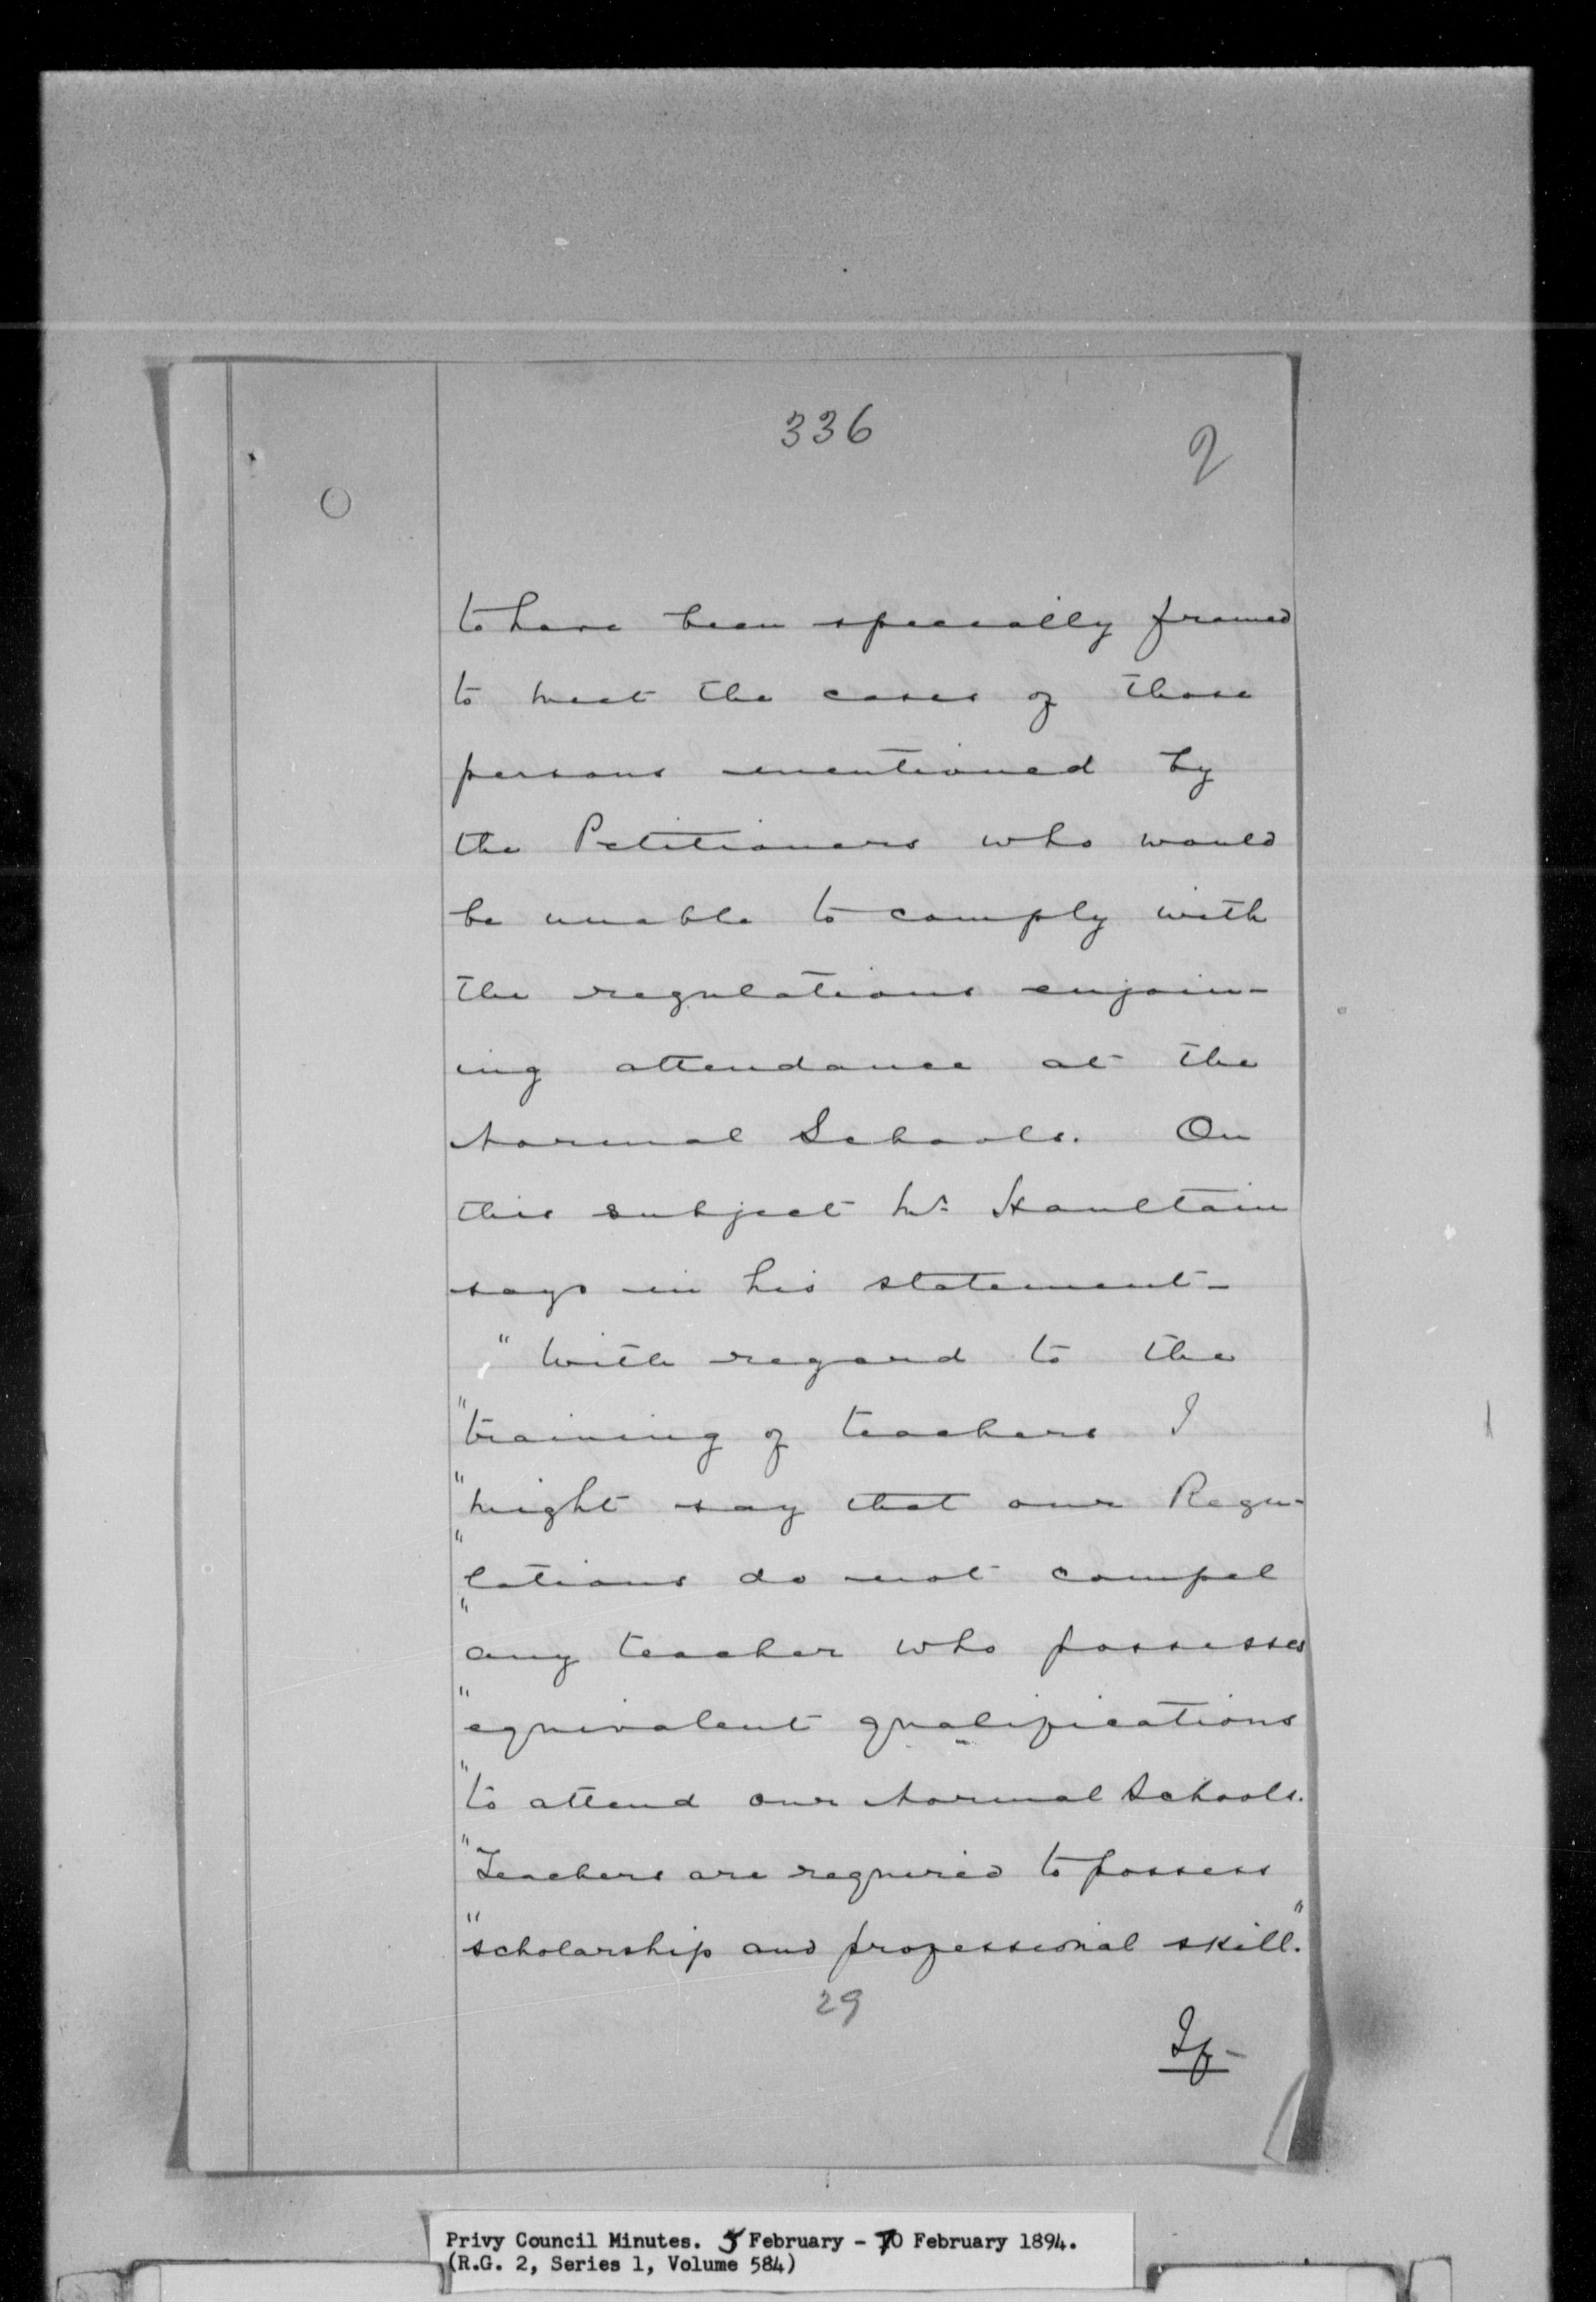 336
2
to have been specially framed
to meet the cases of those
persons mentioned by
the Petitioners who would
be unable to comply with
the regulations enjoin-
ing attendance at the
Normal Schools. On
this subject Mr. Haultain
says in his statement -
"With regard to the
"training of teachers I
"might say that our Regu-
"lations do not compel
"any teacher who possesses
"equivalent qualifications
"to attend our Normal Schools.
"Teachers are required to possess
"scholarship and professional skill."
29
If -
Privy Council Minutes. 5 February - 10 February 1894.
(R.G. 2, Series 1, Volume 584)